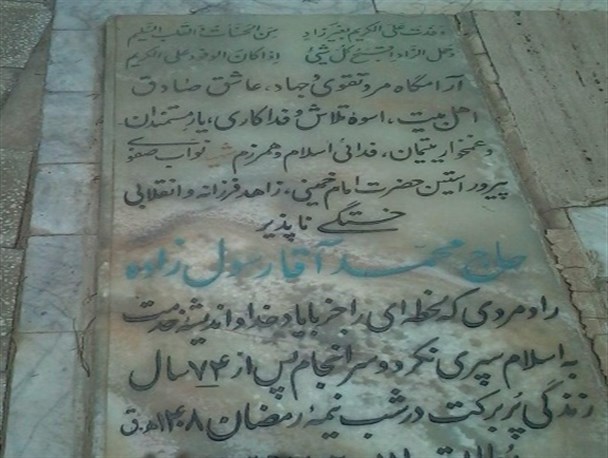 وفدت علی الکریم بغیر زاد من الحسنات والقلب السلیم
وحمل الزاد اقبح کل شیء اذا کان الوفود علی الکریم
آرامگاه مرد تقوی و جهاد، عاشق صادق
اهل بیت، اسوه تلاش و فداکاری، یار مستمندان
و غمخوار یتیمان، فدائی اسلام و همرزم نواب صفوی
پیرو راستین حضرت امام خمینی، زاهد فرزانه و انقلابی
خستگی ناپذیر
حاج محمد آقا رسول زاده
رادمردی که لحظه ای را جز با یاد خدا و اندیشه خدمت
به اسلام سپری نکرد و سرانجام پس از ۷۴ سال
زندگی پر برکت در شب نیمه رمضان ۱۴۰۸ ه.ق